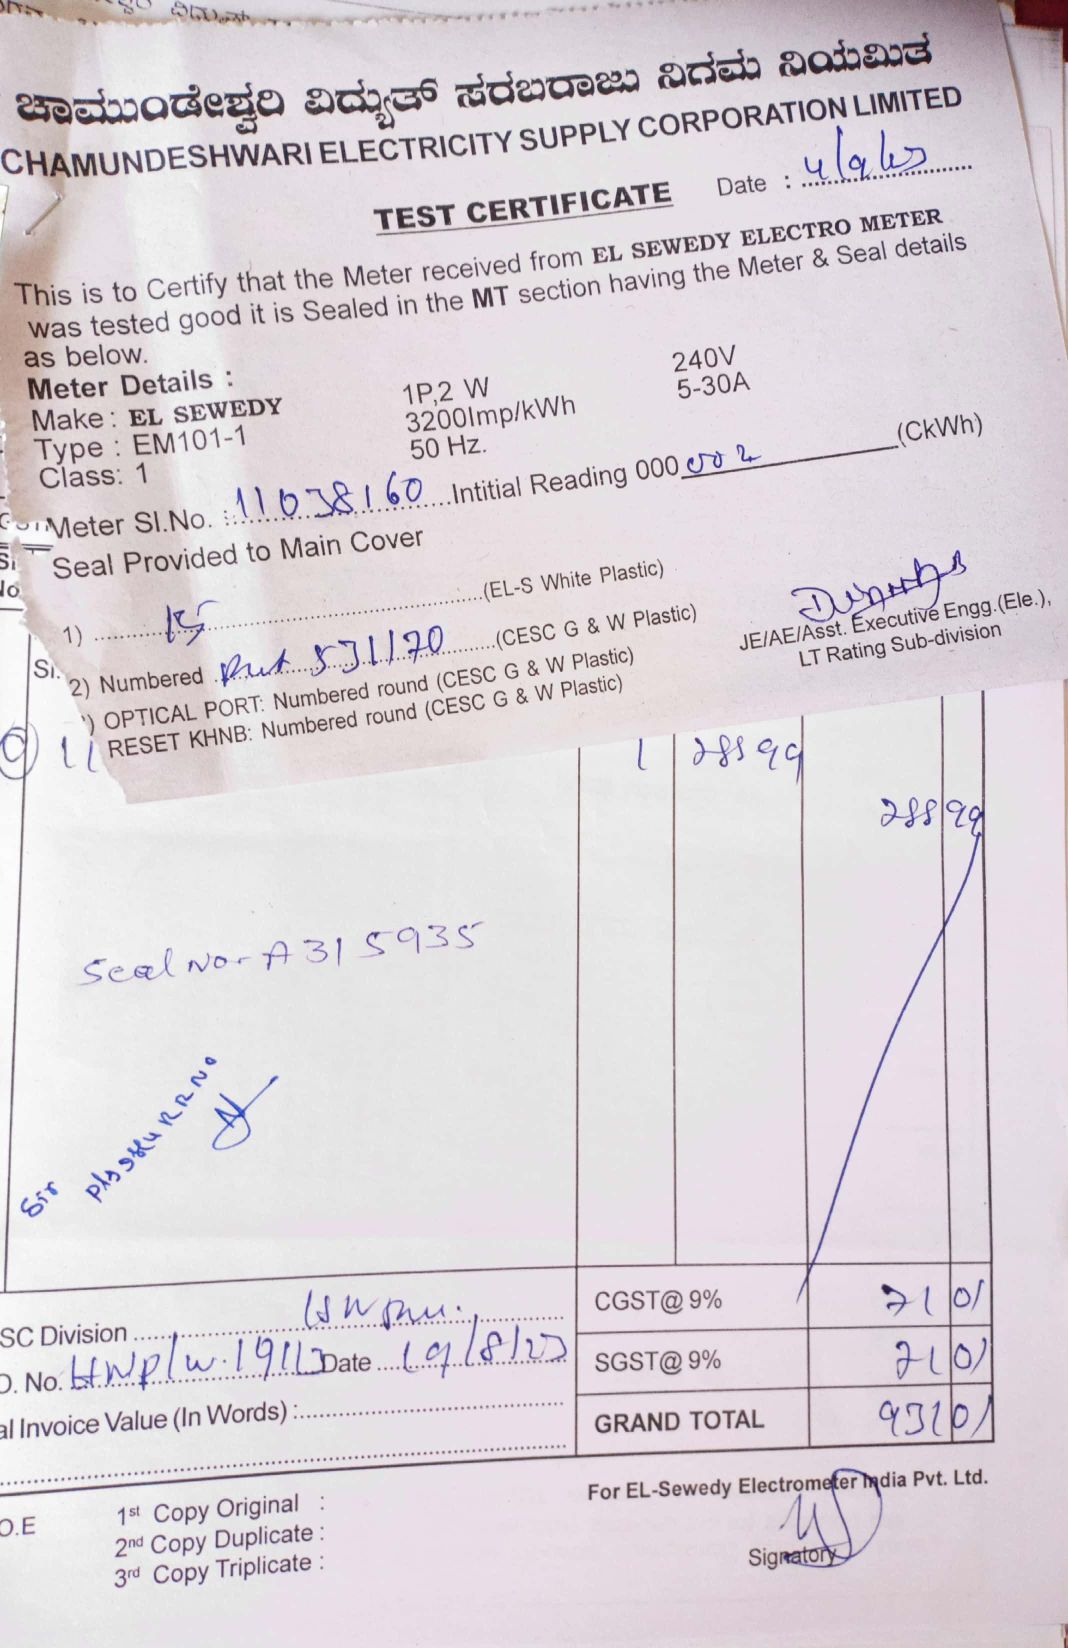 ಚಾಮುಂಡೇಶ್ವರಿ ವಿದ್ಯುತ್ ಸರಬರಾಜು ನಿಗಮ ನಿಯಮಿತ
CHAMUNDESHWARI ELECTRICITY SUPPLY CORPORATION LIMITED
TEST CERTIFICATE
Date : 4/9/23
This is to Certify that the Meter received from EL SEWEDY ELECTRO METER
was tested good it is Sealed in the MT section having the Meter & Seal details
as below.
Meter Details :
Make : EL SEWEDY 1P,2 W 240V
Type : EM101-1 3200Imp/kWh 5-30A
Class: 1 50 Hz.
Meter Sl.No. : 11038160 Intitial Reading 000002 (CkWh)
Seal Provided to Main Cover
1) (EL-S White Plastic)
2) Numbered 531170 (CESC G & W Plastic)
) OPTICAL PORT: Numbered round (CESC G & W Plastic)
RESET KHNB: Numbered round (CESC G & W Plastic)
JE/AE/Asst. Executive Engg.(Ele.),
LT Rating Sub-division
1 78899
788 99
Seal No- A315935
Sir
RR No
SC Division
O. No. HNP/W.1911 Date 19/8/23
al Invoice Value (In Words) :
CGST@ 9% 71 01
SGST@ 9% 71 01
GRAND TOTAL 931 01
For EL-Sewedy Electrometer India Pvt. Ltd.
Signatory
O.E
1st Copy Original :
2nd Copy Duplicate :
3rd Copy Triplicate :